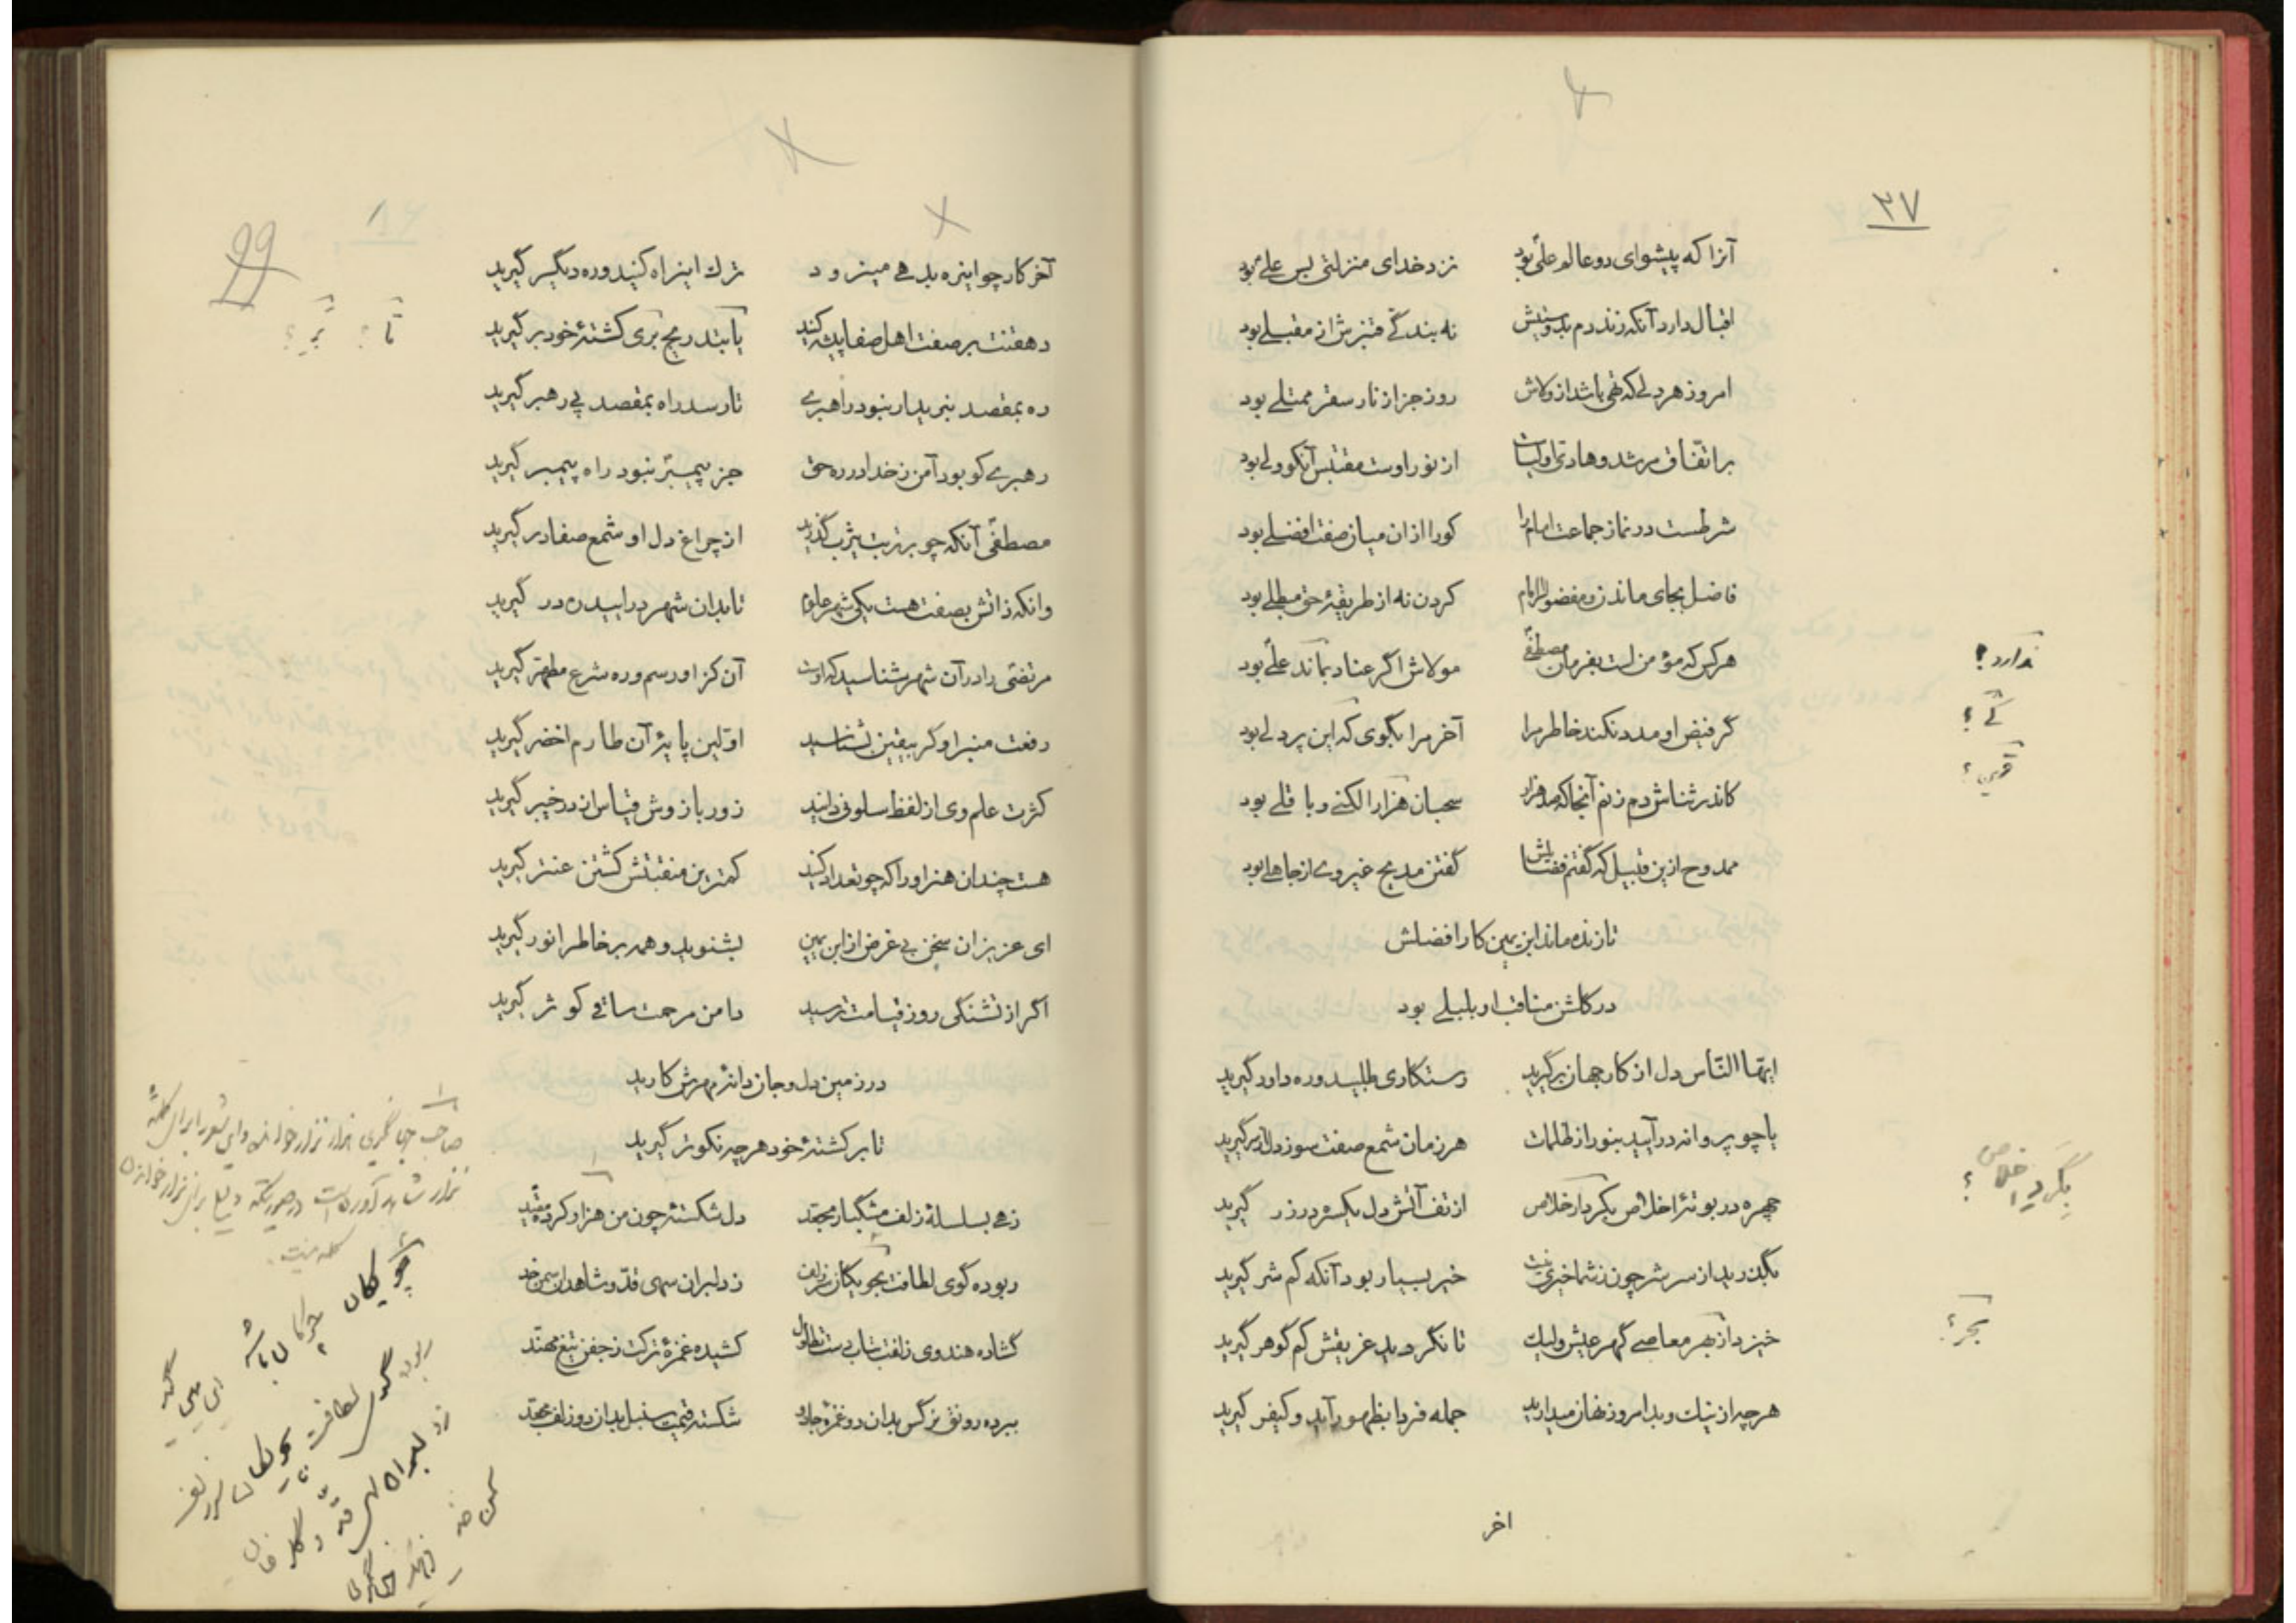 ۳۷
آنرا که پیشوای دو عالم علی بود نزد خدای منزلتی بس علی بود
اقبال دارد آنکه زند دم بدوستیش نه بندگی قنبرش از مقبلی بود
امروز هر دلی که تهی باشد از ولاش روز جزا ز نار سقر ممتلی بود
بر اتفاق مرشد و هادی اولیاست از نور اوست مقتبس آنکو ولی بود
شرطست در نماز جماعت امام را کورا از آن میان صفت افضلی بود
فاضل بجای ماندن و مفضول را امام کردن نه از طریقهٔ حق مبطلی بود
هر کس که مؤمن است بفرمان مصطفی مولاش اگر عناد نماند علی بود
ندارد؟
گر فیض او مدد نکند خاطر مرا آخر مرا بگوی که این پر دلی بود
کاندر ثناش دم زنم آنجا که صد هزار سحبان هزار الکنی و باقلی بود
ممدوح ازین قبیل که گفتم فضایلش گفتن مدیح غیر وی از جاهلی بود
تا زنده ماند ابن یمین کار افضلش
در گلشن مناقب او بلبلی بود
ایها الناس دل از کار جهان برگیرید رستگاری طلبید و ره داور گیرید
یا چو پروانه درآیید بنور از ظلمات هر زمان شمع صفت سوز دل از سر گیرید
چهره در بوتهٔ اخلاص بکردار خلاص از تف آتش دل یکسره در زر گیرید
بگذرید از سر شر چون ز شما خیری نیست خیر بسیار بود آنکه کم شر گیرید
خیزد از بهر معاصی گهر عیش ولیک تا نگردید غریقش کم گوهر گیرید
بحر؟
هرچه از نیک و بد امروز نهان میدارید جمله فردا بظهور آید و کیفر گیرید
اخر
99
آخر کار چو این ره بدهی میرود ترک این راه کنید و ره دیگر گیرید
دهقنت بر صفت اهل صفا پیشه کنید یا بتدریج بری کشتهٔ خود برگیرید
تا؟
ره بمقصد نبرید ار نبود راهبری تا رسد راه بمقصد پی رهبر گیرید
رهبری کو بود آمن ز خدا در ره حق جز پیمبر نبود راه پیمبر گیرید
مصطفی آنکه چو بر تربت یثرب گذرید از چراغ دل او شمع صفا در گیرید
وانکه ذاتش بصفت هست یکی شهر علوم تا بدان شهر درایید ره در گیرید
مرتضی را در آن شهر شناسید که اوست آن کز او رسم و ره شرع مطهر گیرید
رفعت منبر او گر بیقین بشناسید اولین پایهٔ آن طارم اخضر گیرید
کثرت علم وی از لفظ سلونی دانید زور بازوش قیاس از در خیبر گیرید
هست چندان هنر او را که چو تعداد کنید کمترین منقبتش کشتن عنتر گیرید
ای عزیزان سخن بی غرض از ابن یمین بشنوید و همه بر خاطر انور گیرید
اگر از تشنگی روز قیامت ترسید دامن مرحمت ساقی کوثر گیرید
در زمین دل و جان دانهٔ مهرش کارید
تا بر کشتهٔ خود هرچه نکوتر گیرید
زهی بسلسلهٔ زلف مشگبار مجعد دل شکستهٔ چون من هزار کرده مقید
ربوده گوی لطافت بچوگان سر زلف ز دلبران سهی قد و شاهدان سمن خد
گشاده هندوی زلفت بتاب دست تطاول کشیده غمزهٔ ترکت ز جفن تیغ مهند
ببرده رونق نرگس بدان دو غمزهٔ جادو شکسته قیمت سنبل بدان دو زلف مجعد